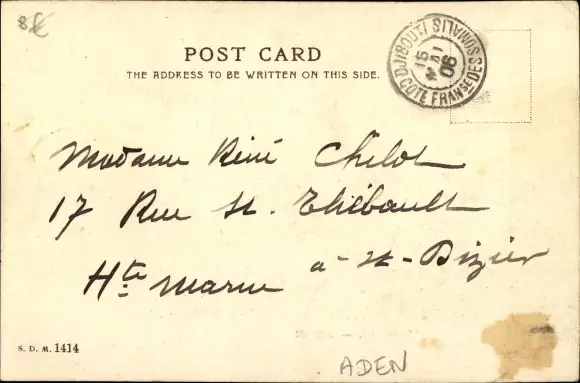 8£
POST CARD
THE ADDRESS TO BE WRITTEN ON THIS SIDE.
DJIBOUTI COTE FRANSE DES SOMALIS
15
06
Madame René Chelot
17 Rue St. Thiébault
à St-Dizier
Hte Marne
S. D. M. 1414
ADEN